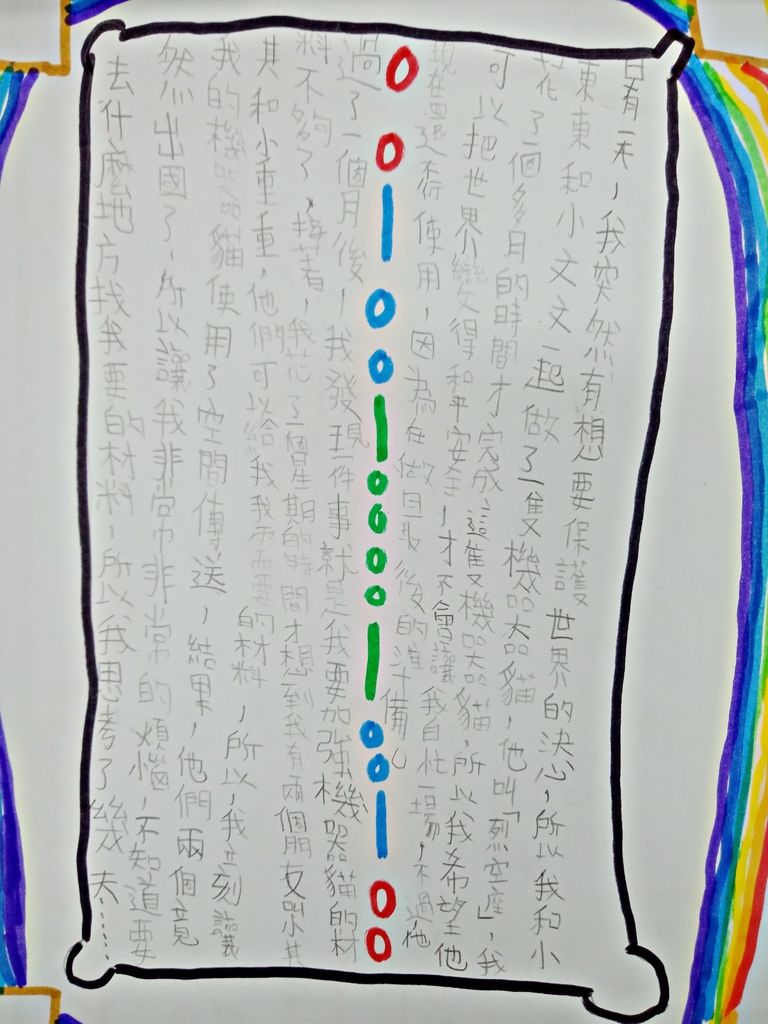 有一天,我突然有想要保護世界的決心,所以我和小
東東和小文文一起做了一隻機器貓,他叫「烈空座」,我
花了一個多月的時間才完成,這隻機器貓,所以我希望他
可以把世界變得和平安全,才不會讓我白忙一場,不過,他
現在使用,因為在做最後的準備。
過了一個月後,我發現一件事就是我要加強機器貓的材
料不夠了,接著,我花了一個星期的時間才想到我有兩個朋友叫小其
其和小重重,他們可以給我我所需要的材料,所以,我立刻讓
我的機器貓使用了空間傳送,結果,他們兩個竟
然出國了,所以讓我非常非常的煩惱,不知道要
去什麼地方找我要的材料,所以我思考了幾天......